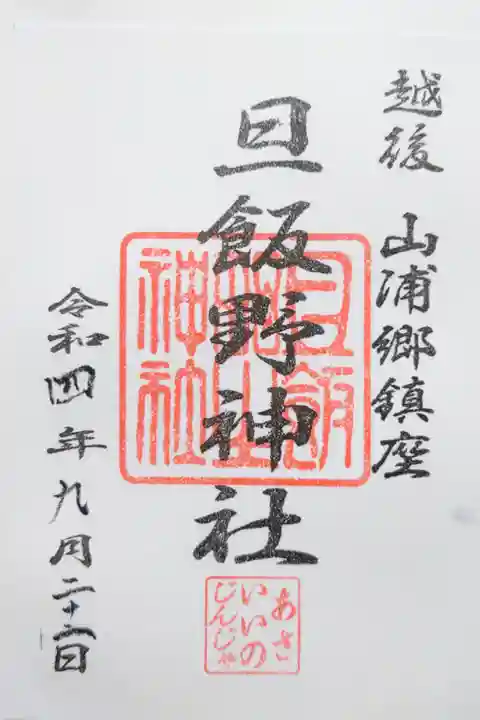 越後 山浦郷鎮座
旦飯野神社
令和四年九月二十二日
あさ
いいの
じんじゃ